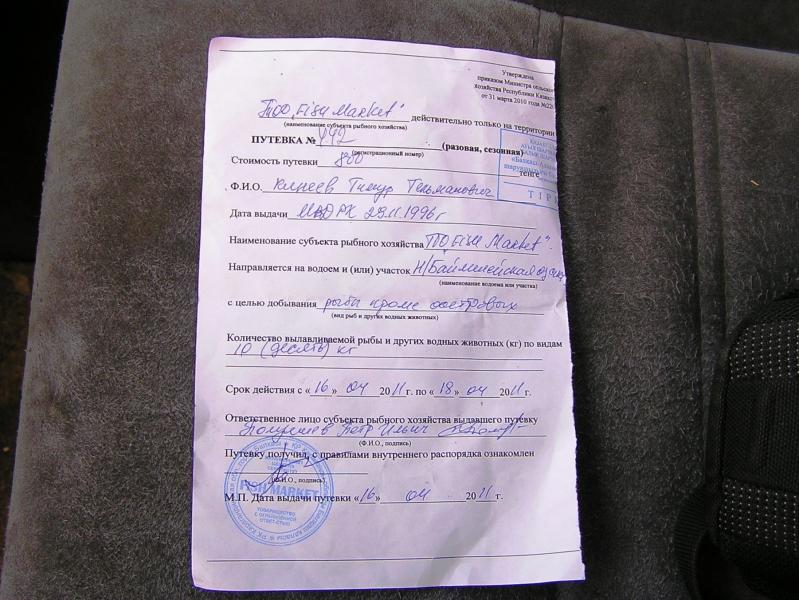 Утверждена
приказом Министра сельско
Хозяйства Республики Казах
от 31 марта 2010 года №22
ТОО „Fish Market" действительно только на территории
(наименование субъекта рыбного хозяйства)
ПУТЕВКА № (разовая, сезонная)
(регистрационный номер)
Стоимость путевки 800 тенге
Ф.И.О. Тимур Тельманович
Дата выдачи 29.11.1996г
Наименование субъекта рыбного хозяйства ТОО „Fish Market"
Направляется на водоем и (или) участок
(наименование водоема или участка)
с целью добывания рыбы кроме осетровых
(вид рыб и других водных животных)
Количество вылавливаемой рыбы и других водных животных (кг) по видам
10 (десять) кг
Срок действия с «16» 04 2011 г. по «18» 04 2011 г.
Ответственное лицо субъекта рыбного хозяйства выдавшего путевку
Петр Ильич
(Ф.И.О., подпись)
Путевку получил, с правилами внутреннего распорядка ознакомлен
(Ф.И.О., подпись)
М.П. Дата выдачи путевки «16» 04 2011 г.
FISH MARKET
ТОВАРИЩЕСТВО
С ОГРАНИЧЕННОЙ
ОТВЕТ-СТЬЮ